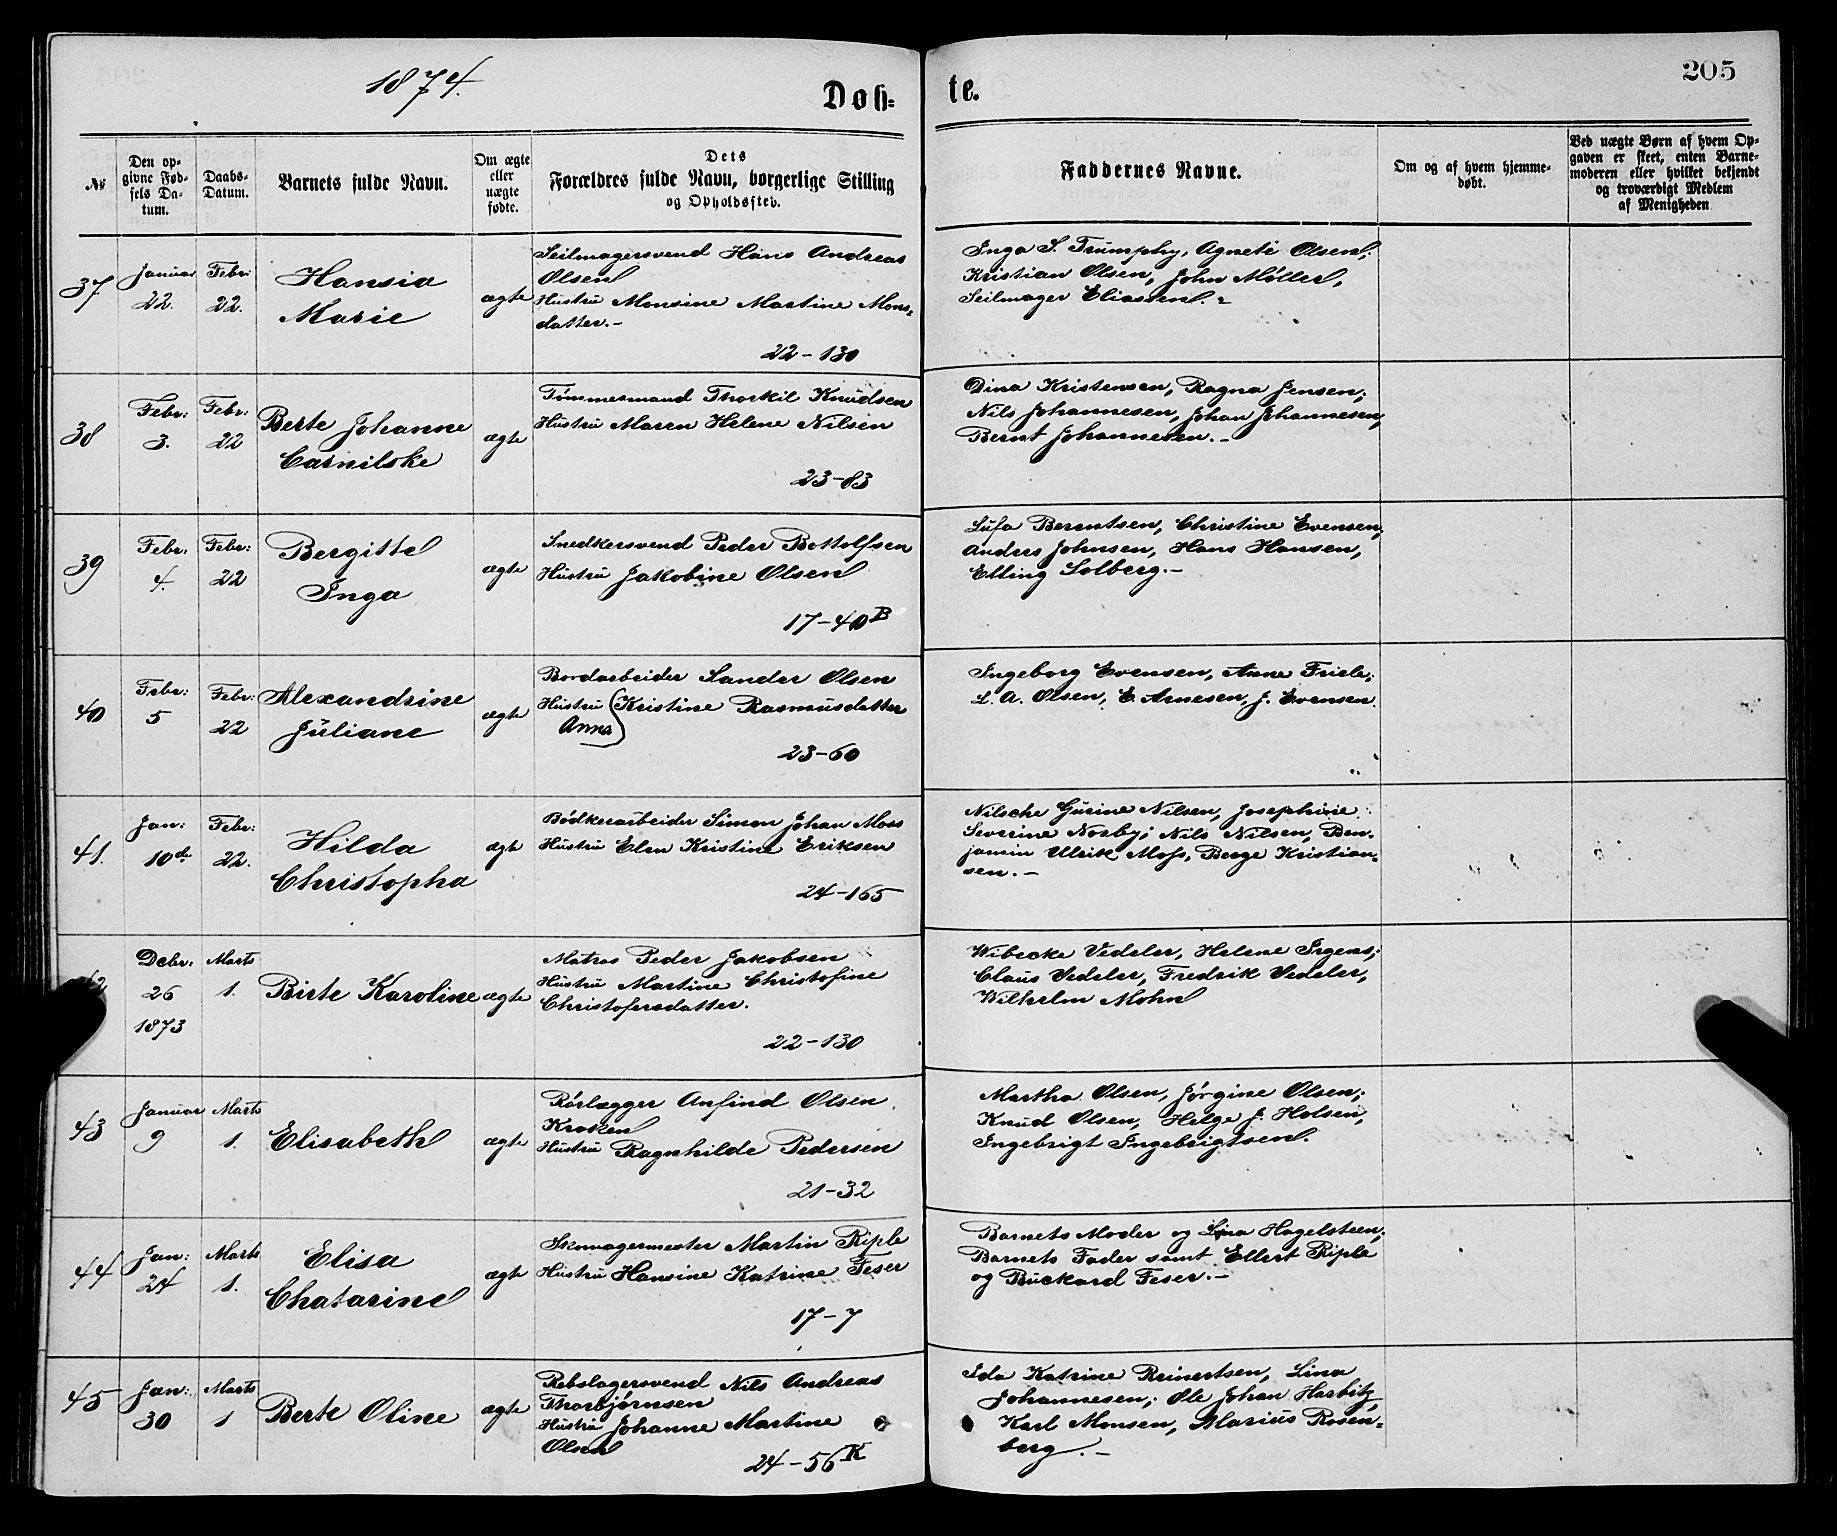 1874.
Døb=
te.
205
№
Den op=
givne Fød=
sels Da=
tum.
Daabs=
Datum.
Barnets fulde Navn.
Om ægte
eller
uægte
fødte.
Dets
Forældres fulde Navn, borgerlige Stilling
og Opholdssted.
Faddernes Navne.
Om og af hvem hjemme=
døbt.
Ved uægte Børn af hvem Op=
gaven er skeet, enten Barne=
moderen eller hvilket bekjendt
og troværdigt Medlem
af Menigheden
37
Januar
22.
Febr:
22.
Hansia
Marie
ægte
Seilmagersvend Hans Andreas
Olsen
Hustru Monsine Martine Mons=
datter.-
22-130
Inga S. Trumphy, Agnete Olsen;
Kristian Olsen, John Møller,
Seilmager Eliassen.-
38
Febr:
3.
Febr:
22
Berte Johanne
Carnilske
ægte
Tømmermand Thorkil Knudsen
Hustru Maren Helene Nilsen
23-83
Dina Kristensen, Ragna Jensen;
Nils Johannesen, Johan Johannesen,
Bernt Johannesen.-
39
Febr:
4.
Febr:
22
Bergitte
Inga
ægte
Snedkersvend Peder Bottolfsen
Hustru Jakobine Olsen
17-40 B
Sufa Berentsen, Christine Evensen;
Anders Johnsen, Hans Hansen,
Elling Solberg.-
40
Febr:
5
Febr:
22
Alexandrine
Juliane
ægte
Bordarbeider Sander Olsen
Hustru (Kristine Rasmusdatter
Anna)
23-60
Ingeborg Evensen, Anne Friele;
L. A. Olsen, E. Arnesen, J. Evensen.
41.
Jan:
10de
Febr:
22.
Hilda
Christopha
ægte
Bødkerarbeider Simon Johan Moss
Hustru Elen Kristine Eriksen
24-165
Nilsche Gurine Nilsen, Josephine
Severine Nosby; Nils Nilsen, Ben=
jamin Ulrik Moss, Berge Kristian=
sen.-
Debr:
26
1873
Marts
1.
Birte Karoline
ægte
Matros Peder Jakobsen
Hustru Martine Christofine
Christofersdatter.
22-130
Wibecke Vedeler, Helene Irgens;
Claus Vedeler, Fredrik Vedeler,
Wilhelm Mohn
43
Januar
9
Marts
1.
Elisabeth
ægte
Rørlægger Anfind Olsen
Kroken
Hustru Ragnhilde Pedersen
21-32
Martha Olsen, Jørgine Olsen;
Knud Olsen, Helge J. Holsen,
Ingebrigt Ingebrigtsen.
44
Jan:
24
Marts
1.
Elisa
Chatarine
ægte
Skomagermester Martin Riple
Hustru Hansine Katrine Feser
17-7
Barnets Moder og Lina Hagelsteen;
Barnets Fader samt Ellert Riple
og Buckard Feser.-
45
Jan:
30
Marts
1
Berte Oline
ægte
Rebslagersvend Nils Andreas
Thorbjørnsen
Hustru Johanne Martine
Olsen
24-56 K
Ida Katrine Reinertsen, Lina
Johannesen; Ole Johan Harbitz,
Karl Monsen, Marius Rosen=
berg.-